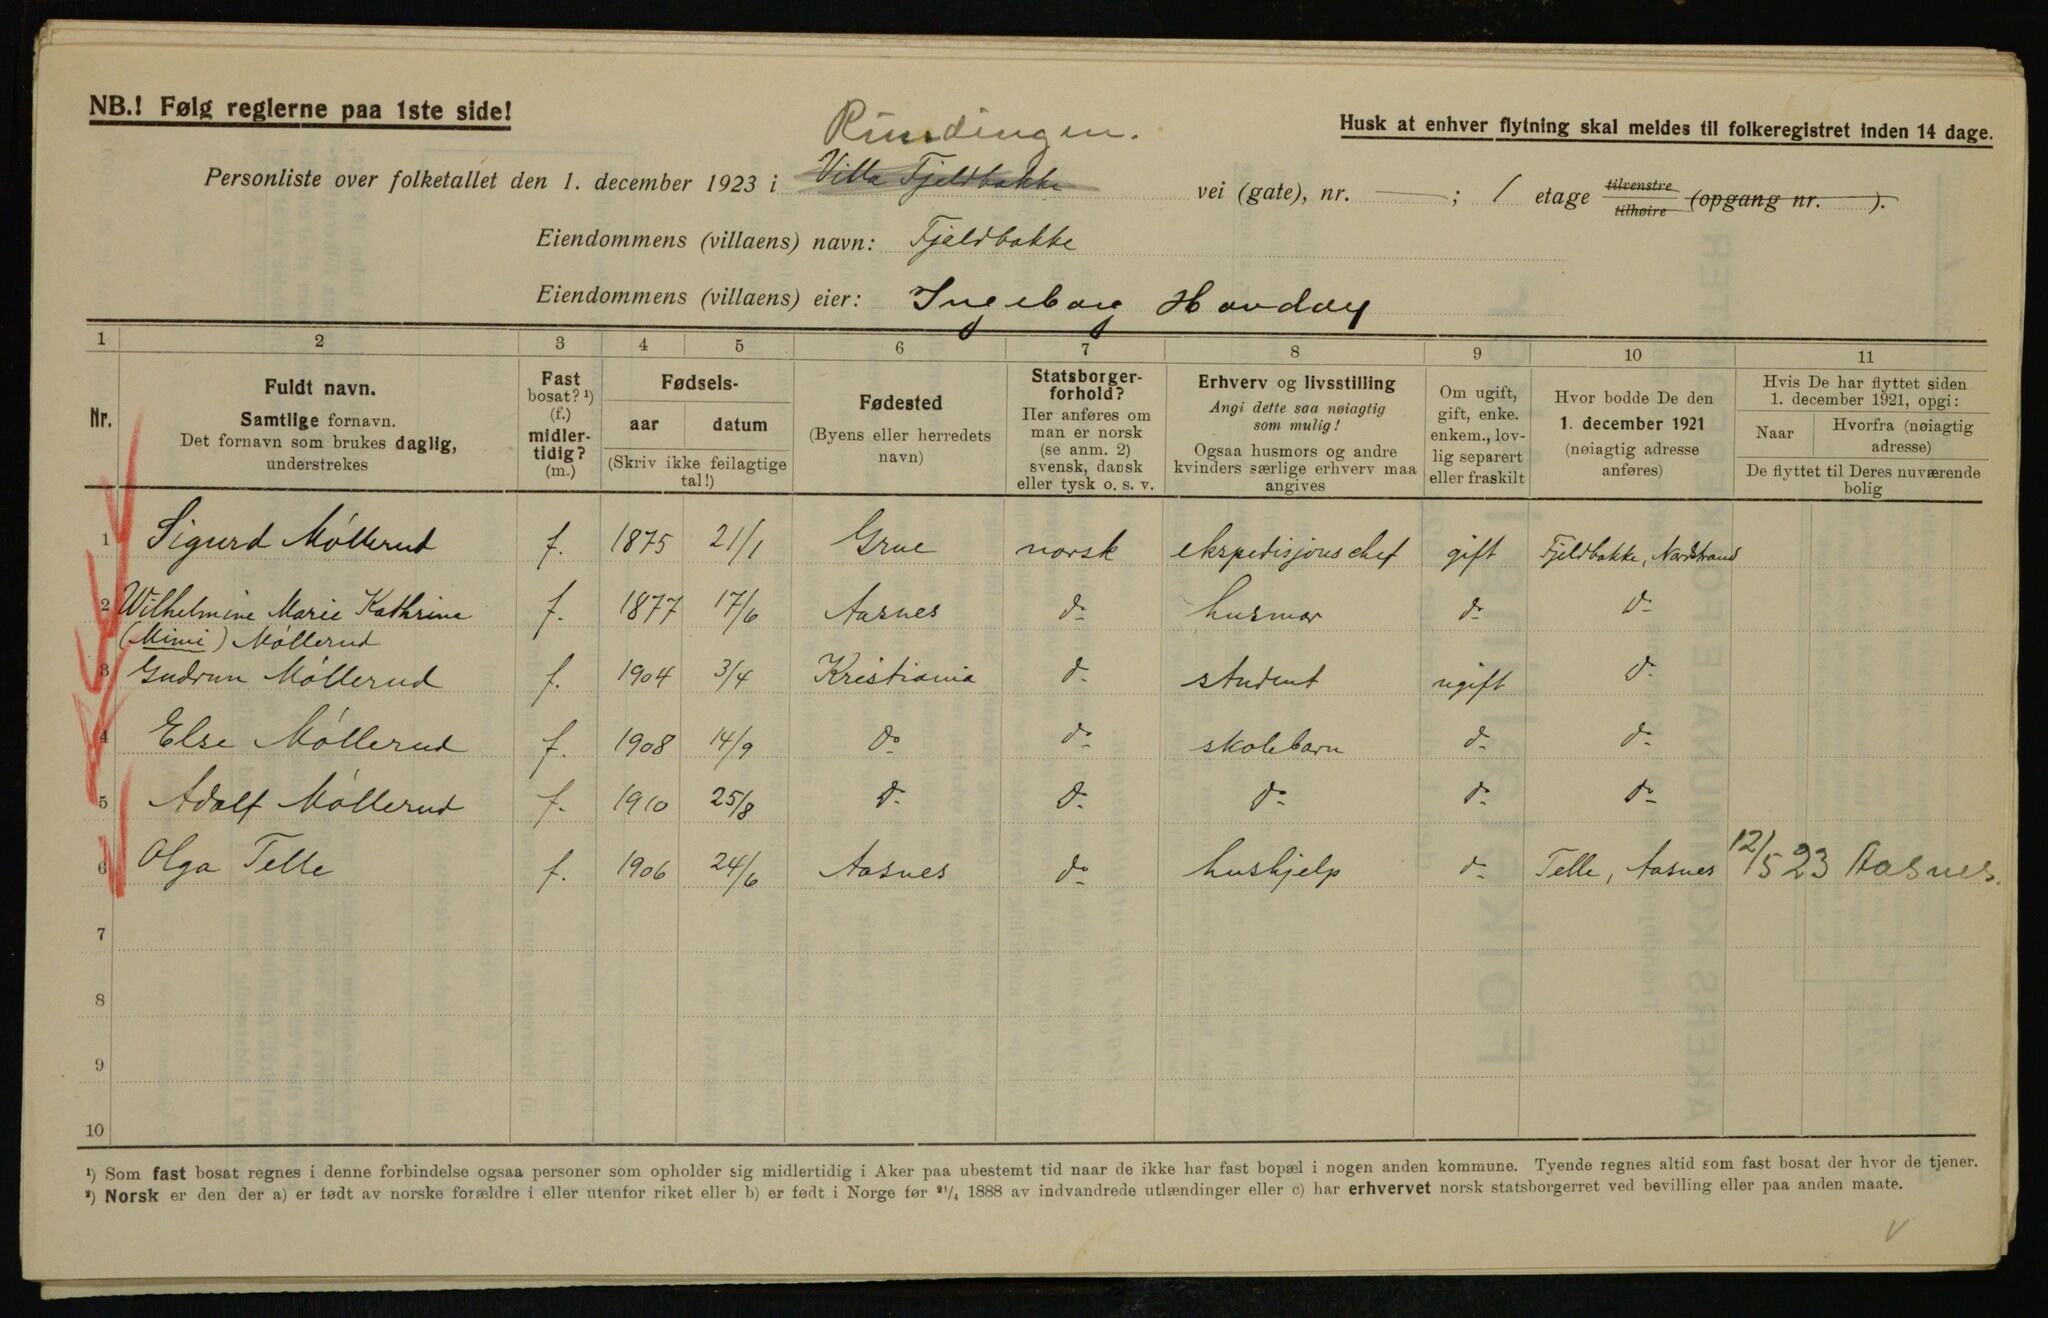 NB.! Følg reglerne paa 1ste side!
Husk at enhver flytning skal meldes til folkeregistret inden 14 dage.
Rundingen.
Personliste over folketallet den 1. december 1923 i Villa Fjeldbakke vei (gate), nr. — ; 1 etage tilvenstre tilhøire (opgang nr. ).
Eiendommens (villaens) navn: Fjeldbakke
Eiendommens (villaens) eier: Ingeborg
1 2 3 4 5 6 7 8 9 10 11
Nr.
Fuldt navn.
Samtlige fornavn.
Det fornavn som brukes daglig,
understrekes
Fast
bosat? ¹)
(f.)
midler-
tidig?
(m.)
Fødsels-
aar datum
(Skriv ikke feilagtige
tal!)
Fødested
(Byens eller herredets
navn)
Statsborger-
forhold?
Her anføres om
man er norsk
(se anm. 2)
svensk, dansk
eller tysk o. s. v.
Erhverv og livsstilling
Angi dette saa nøiagtig
som mulig!
Ogsaa husmors og andre
kvinders særlige erhverv maa
angives
Om ugift,
gift, enke.
enkem., lov-
lig separert
eller fraskilt
Hvor bodde De den
1. december 1921
(nøiagtig adresse
anføres)
Hvis De har flyttet siden
1. december 1921, opgi:
Naar Hvorfra (nøiagtig
adresse)
De flyttet til Deres nuværende
bolig
1 Sigurd Møllerud f. 1875 21/1 Grue norsk ekspedisjonschef gift Fjeldbakke, Nordstrand
2 Wilhelmine Marie Kathrine f. 1877 17/6 Aasnes do husmor do do
(Mimi) Møllerud
3 Gudrun Møllerud f. 1904 3/4 Kristiania do student ugift do
4 Else Møllerud f. 1908 14/9 do do skolebarn do do
5 Adolf Møllerud f. 1910 25/8 do do do do do
6 Olga Telle f. 1906 24/6 Aasnes do hushjelp do Telle, Aasnes 12/5 23 Aasnes.
7
8
9
10
¹) Som fast bosat regnes i denne forbindelse ogsaa personer som opholder sig midlertidig i Aker paa ubestemt tid naar de ikke har fast bopæl i nogen anden kommune. Tyende regnes altid som fast bosat der hvor de tjener.
²) Norsk er den der a) er født av norske forældre i eller utenfor riket eller b) er født i Norge før ²¹/₄ 1888 av indvandrede utlændinger eller c) har erhvervet norsk statsborgerret ved bevilling eller paa anden maate.